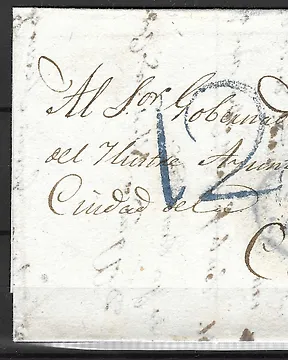 Al S.or Goberna
12
del Ilustre Ayun
Ciudad de
C